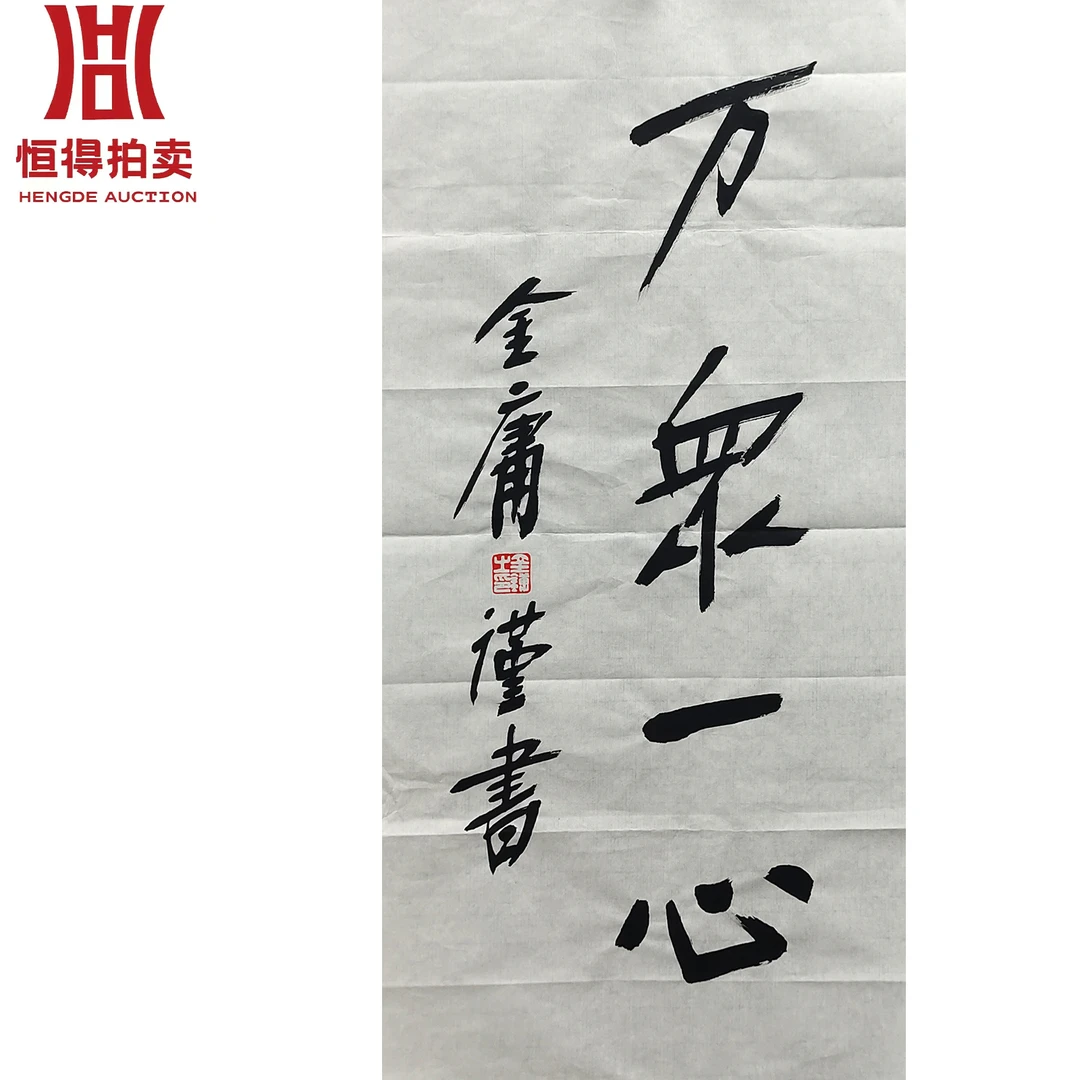 恒得拍卖
HENGDE AUCTION
万衆一心
金庸
謹書